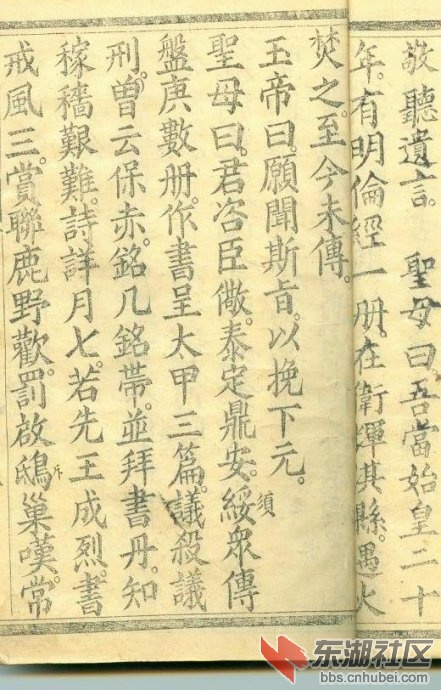 敬聽遺言。　聖母曰。吾當始皇二十
年。有明倫經一册。在衛輝其縣。遇火
焚之。至今未傳。
玉帝曰。願聞斯旨。以挽下元。
聖母曰。君咨臣儆。泰定鼎安。綏衆傳
須
盤庚數册。作書呈太甲三篇。議殺議
刑。曾云保赤。銘几銘帶。並拜書丹。知
稼穡艱難。詩詳月七。若先王成烈。書
戒風三。賞聯鹿野歡。罰啟鴟巢嘆。常
斥
东湖社区
bbs.cnhubei.com